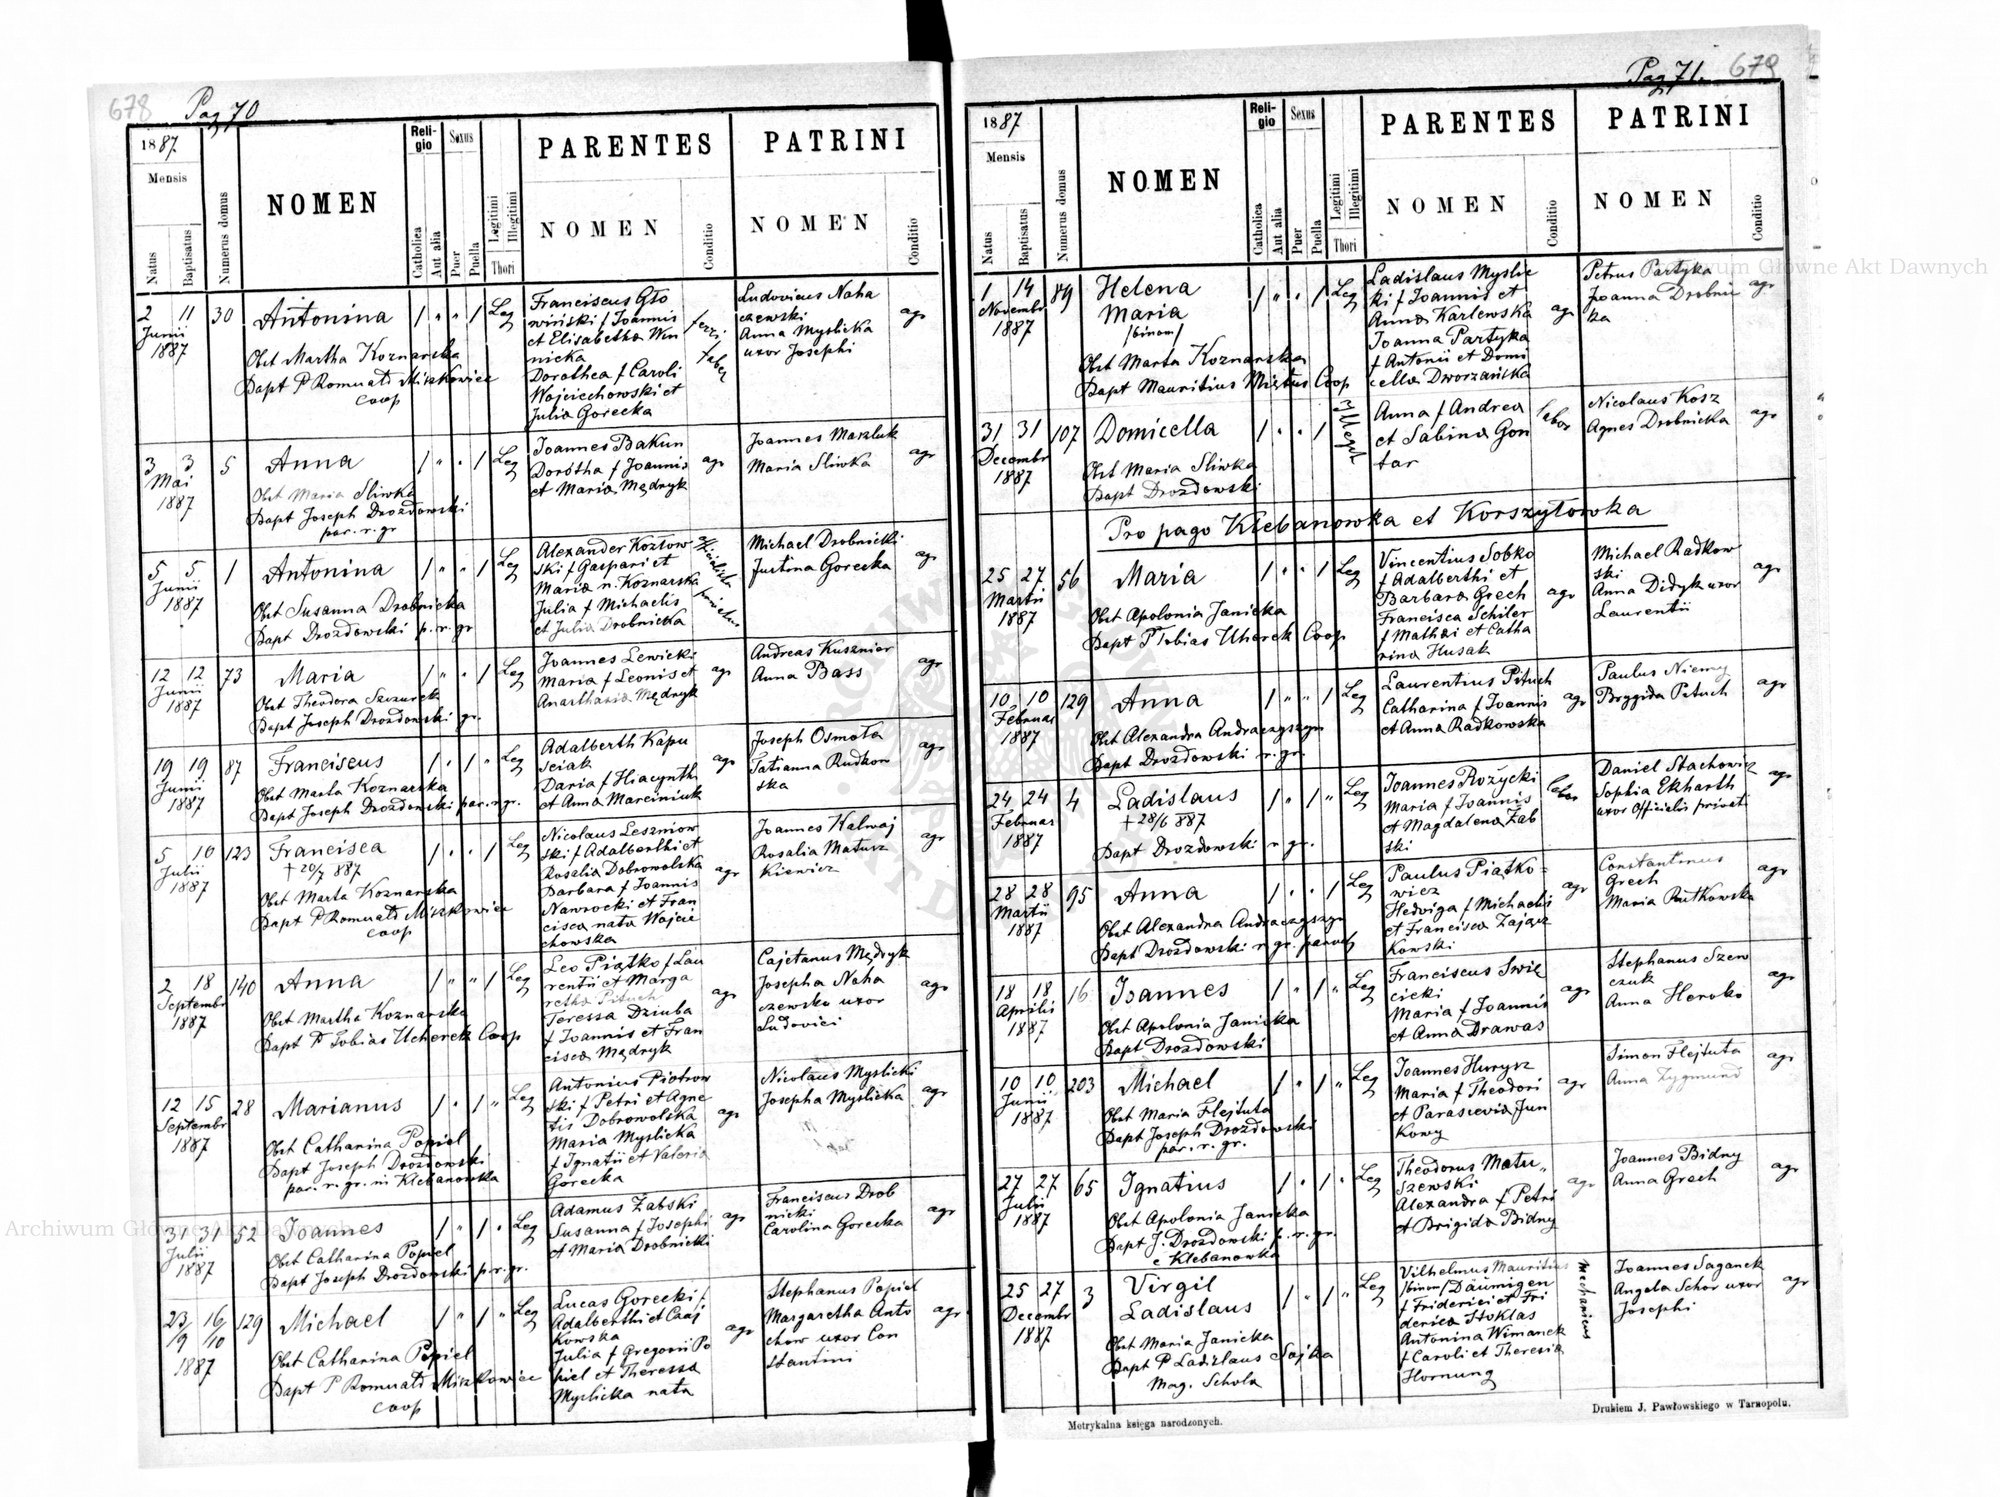 678 Pag 70
1887
Mensis
Natus
Baptisatus
Numerus domus
NOMEN
Religio
Catholica
Aut alia
Sexus
Puer
Puella
Legitimi
Illegitimi
Thori
PARENTES
NOMEN
Conditio
PATRINI
NOMEN
Conditio
2 11 30 Antonina / " " / Leg
Junii
1887
Obst Martha Koznarska
Bapt P Romuald Miszkowicz
coop
Franciscus Gło
wiński f Joannis
et Elisabetha Win
nicka
Dorothea f Caroli
Wojciechowski et
Julia Gorecka
ferri
faber
Ludovicus Naha
czewski
Anna Myslicka
uxor Josephi
agr
3 3 5 Anna / " " / Leg
Mai
1887
Obst Maria Sliwka
Bapt Joseph Drozdowski
par. r. gr
Joannes Bakun
Dorótha f Joannis
et Maria Mędryk
agr
Joannes Marzluk
Maria Sliwka
agr
5 5 1 Antonina / " " / Leg
Junii
1887
Obst Susanna Drobnicka
Bapt Drozdowski p. r. gr
Alexander Kozłow
ski f Gaspari et
Maria n. Koznarska
Julia f Michaelis
et Julia Drobnicka
Michael Drobnicki
Justina Gorecka
agr
12 12 73 Maria / " " / Leg
Junii
1887
Obst Theodora Szczurek
Bapt Joseph Drozdowski gr.
Joannes Lewicki
Maria f Leonis et
Anasthasia Mędryk
agr
Andreas Kusznier
Anna Bass
agr
19 19 87 Franciscus / " / " Leg
Junii
1887
Obst Marta Koznarska
Bapt Joseph Drozdowski par. r. gr.
Adalberth Kapu
sciak
Daria f Hiacynthi
et Anna Marciniuk
agr
Joseph Osmoła
Tatianna Rudkow
ska
agr
5 10 123 Francisca / " " / Leg
Julii
1887
† 20/7 887
Obst Marta Koznarska
Bapt P Romuald Miszkowicz
coop
Nicolaus Leszniow
ski f Adalberthi et
Rosalia Dobrowolska
Barbara f Joannis
Nawrocki et Fran
cisca nata Wojcie
chowska
agr
Joannes Kalwaj
Rosalia Matusz
kiewicz
agr
2 18 140 Anna / " " / Leg
Septembr
1887
Obst Martha Koznarska
Bapt P Tobias Ucherek Coop
Leo Piątko f Lau
rentii et Marga
retha Pituch
Teressa Dziuba
f Joannis et Fran
cisca Mędryk
agr
Cajetanus Mędryk
Josepha Naha
czewska uxor
Ludovici
agr
12 15 28 Marianus / " / " Leg
Septembr
1887
Obst Catharina Popiel
Bapt Joseph Drozdowski
par. r. gr. in Klebanowka
Antonius Piotrow
ski f Petri et Agne
tis Dobrowolska
Maria Myslicka
f Ignatii et Valeria
Gorecka
agr
Nicolaus Myslicki
Josepha Myslicka
agr
31 31 52 Joannes / " / " Leg
Julii
1887
Obst Catharina Popiel
Bapt Joseph Drozdowski p. r. gr.
Adamus Zabski
Susanna f Josephi
et Maria Drobnicki
agr
Franciscus Drob
nicki
Carolina Gorecka
agr
23/9 16/10 129 Michael / " / " Leg
1887
Obst Catharina Popiel
Bapt P Romuald Miszkowicz
coop
Lucas Gorecki f
Adalberthi et Czaj
kowska
Julia f Gregorii Po
piel et Theressa
Myslicka nata
agr
Stephanus Popiel
Margaretha Anto
chow uxor Con
stantini
agr
Pag 71. 679
1887
Mensis
Natus
Baptisatus
Numerus domus
NOMEN
Religio
Catholica
Aut alia
Sexus
Puer
Puella
Legitimi
Illegitimi
Thori
PARENTES
NOMEN
Conditio
PATRINI
NOMEN
Conditio
1 14 89 Helena / " " / Leg
Novembr
1887
Maria
/binom/
Obst Marta Koznarska
Bapt Mauritius Miętus Coop
Ladislaus Myslic
ki f Joannis et
Anna Karlewska
Joanna Partyka
f Antonii et Domi
cella Dworzańska
agr
Petrus Partyka
Joanna Drobnic
ka
agr
31 31 107 Domicella / " " / Illegit
Decembr
1887
Obst Maria Sliwka
Bapt Drozdowski
Anna f Andrea
et Sabina Gon
tar
labor
Nicolaus Kosz
Agnes Drobnicka
agr
Pro pago Klebanowka et Korszyłowka
25 27 56 Maria / " " / Leg
Martii
1887
Obst Apolonia Janicka
Bapt P Tobias Uherek Coop
Vincentius Sobko
f Adalberthi et
Barbara Grech
Francisca Schiler
f Mathei et Catha
rina Husak
agr
Michael Radkow
ski
Anna Didyk uxor
Laurentii
agr
10 10 129 Anna / " " / Leg
Februar
1887
Obst Alexandra Andraczyszyn
Bapt Drozdowski r. gr.
Laurentius Pituch
Catharina f Joannis
et Anna Radkowska
agr
Paulus Niemy
Brygida Pituch
agr
24 24 4 Ladislaus / " / " Leg
Februar
1887
† 28/6 887
Bapt Drozdowski r gr.
Joannes Rożycki
Maria f Joannis
et Magdalena Zab
ski
labor
Daniel Stachowicz
Sophia Ekharth
uxor Officialis privati
agr
28 28 95 Anna / " " / Leg
Martii
1887
Obst Alexandra Andraczyszyn
Bapt Drozdowski r. gr. paroch
Paulus Piątko-
wicz
Hedviga f Michaelis
et Francisca Zającz
kowski
agr
Constantinus
Grech
Maria Rutkowska
agr
18 18 16 Joannes / " / " Leg
Aprilis
1887
Obst Apolonia Janicka
Bapt Drozdowski
Franciscus Swię
cicki
Maria f Joannis
et Anna Drawas
agr
Stephanus Szew
czuk
Anna Heroko
agr
10 10 203 Michael / " / " Leg
Junii
1887
Obst Maria Flejtuta
Bapt Joseph Drozdowski
par. r. gr.
Joannes Hurysz
Maria f Theodori
et Parascevia Jun
kowy
agr
Simon Flejtuta
Anna Zygmund
agr
27 27 65 Ignatius / " / " Leg
Julii
1887
Obst Apolonia Janicka
Bapt J. Drozdowski p. r. gr.
e Klebanowka
Theodorus Matu„
szewski
Alexandra f Petri
et Brigida Bidny
agr
Joannes Bidny
Anna Grech
agr
25 27 3 Virgil / " / " Leg
Decembr
1887
Ladislaus
Obst Maria Janicka
Bapt P Ladislaus Sajka
Mag. Schola
Vilhelmus Mauritius
/binom/ Däumigen
f Friderici et Fri
derica Stoklas
Antonina Wimanek
f Caroli et Theresia
Hornung
mechanicus
Joannes Saganek
Angela Schor uxor
Josephi
agr
Metrykalna księga narodzonych.
Drukiem J. Pawłowskiego w Tarnopolu.
Archiwum Główne Akt Dawnych
Archiwum Główne Akt Dawnych